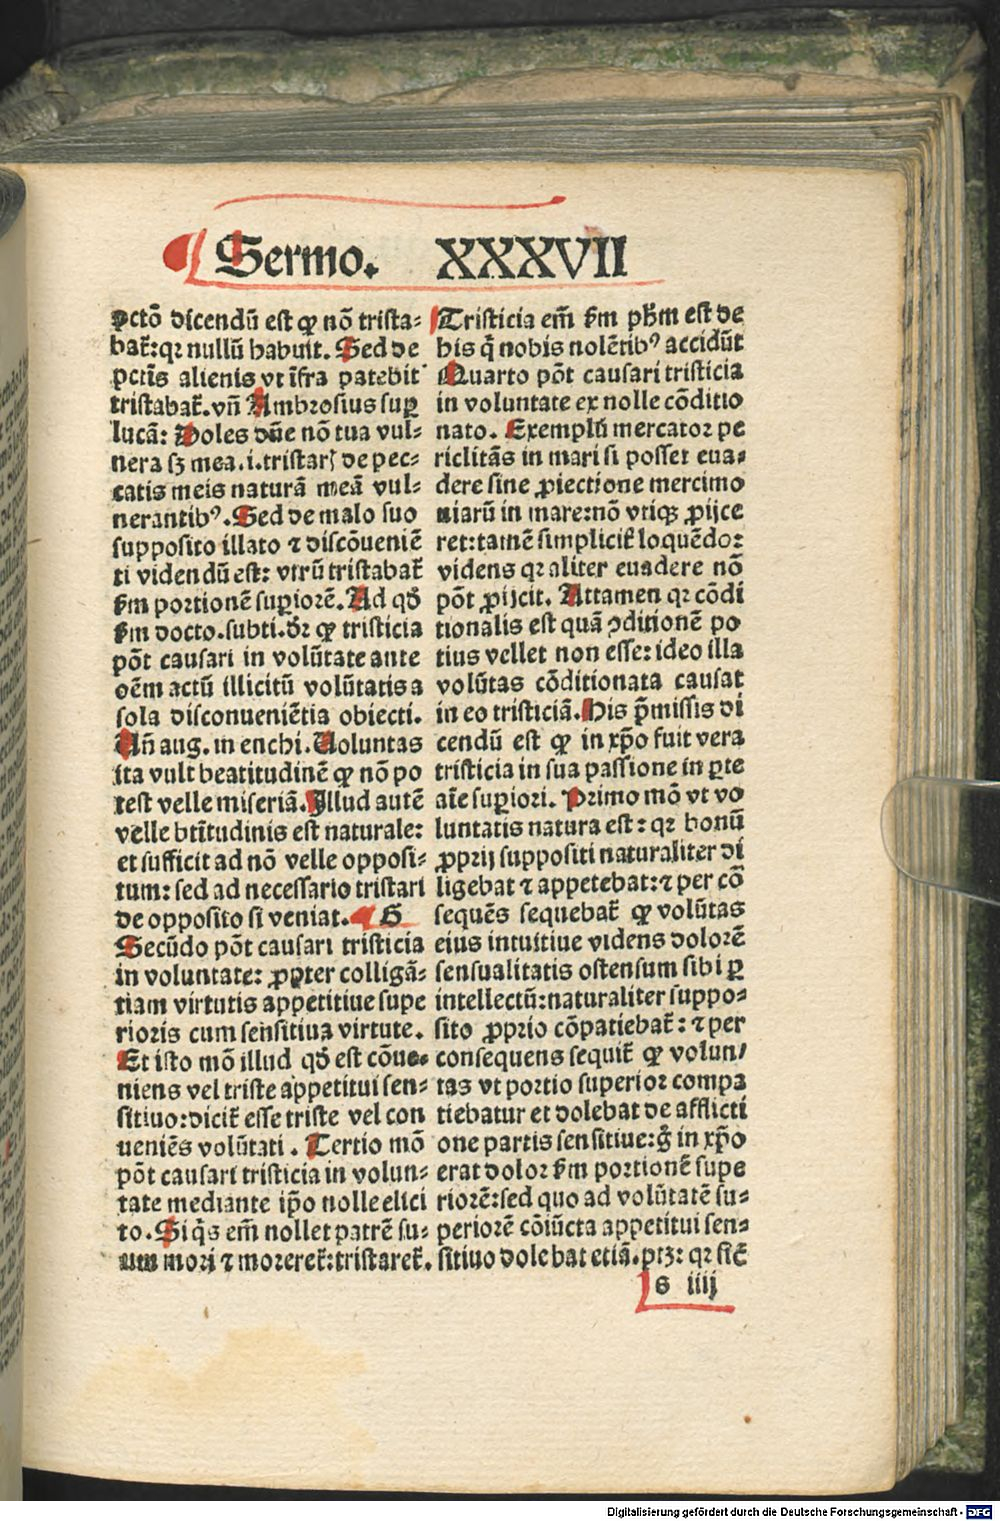 Sermo. XXXVII
pctō dicendū est ꝙ nō trista-
bat̄: qꝛ nullū habuit. Sed de
pctīs alienis vt īfra patebit
tristabat̄. vñ Ambrosius suꝑ
lucā: Doles dñe nō tua vul-
nera sꝫ mea .i. tristarꝭ de pec-
catis meis naturā meā vul-
nerantibꝰ. Sed de malo suo
supposito illato ⁊ discōueniē
ti videndū est: vtrū tristabat̄
ẜm portionē suꝑiorē. Ad qđ
ẜm docto. subti. dꝛ ꝙ tristicia
pōt causari in volūtate ante
oēm actū illicitū volūtatis a
sola disconueniētia obiecti.
Uñ aug. in enchi. Uoluntas
ita vult beatitudinē ꝙ nō po
test velle miseriā. Illud autē
velle btītudinis est naturale:
et sufficit ad nō velle opposi-
tum: sed ad necessario tristari
de opposito si veniat. G
Secūdo pōt causari tristicia
in voluntate: ꝓpter colligā-
tiam virtutis appetitiue supe
rioris cum sensitiua virtute.
Et isto mō illud qđ est cōue-
niens vel triste appetitui sen-
sitiuo: dicit̄ esse triste vel con
ueniēs volūtati. Tertio mō
pōt causari tristicia in volun-
tate mediante ip̄o nolle elici
to. Si q̄s em̄ nollet patrē su-
um mori ⁊ moreret̄: tristaret̄.
Tristicia em̄ ẜm ph̄m est de
his q̄ nobis nolētibꝰ accidūt
Quarto pōt causari tristicia
in voluntate ex nolle cōditio
nato. Exemplū mercator pe
riclitās in mari si posset eua-
dere sine ꝓiectione mercimo
niarū in mare: nō vtiqꝫ ꝓijce
ret: tamē simplicit̄ loquēdo:
videns qꝛ aliter euadere nō
pōt ꝓijcit. Attamen qꝛ cōdi
tionalis est quā ꝯditionē po
tius vellet non esse: ideo illa
volūtas cōditionata causat
in eo tristiciā. His p̄missis di
cendū est ꝙ in xp̄o fuit vera
tristicia in sua passione in ꝑte
aīe suꝑiori. Primo mō vt vo
luntatis natura est: qꝛ bonū
ꝓprij suppositi naturaliter di
ligebat ⁊ appetebat: ⁊ per cō
sequēs sequebat̄ ꝙ volūtas
eius intuitiue videns dolorē
sensualitatis ostensum sibi ꝑ
intellectū: naturaliter suppo-
sito ꝓprio cōpatiebat̄: ⁊ per
consequens sequit̄ ꝙ volun/
tas vt portio superior compa
tiebatur et dolebat de afflicti
one partis sensitiue: g̊ in xp̄o
erat dolor ẜm portionē supe
riorē: sed quo ad volūtatē su-
periorē cōiūcta appetitui sen-
sitiuo dolebat etiā. ptꝫ: qꝛ sic̄
s iiij
Digitalisierung gefördert durch die Deutsche Forschungsgemeinschaft - DFG